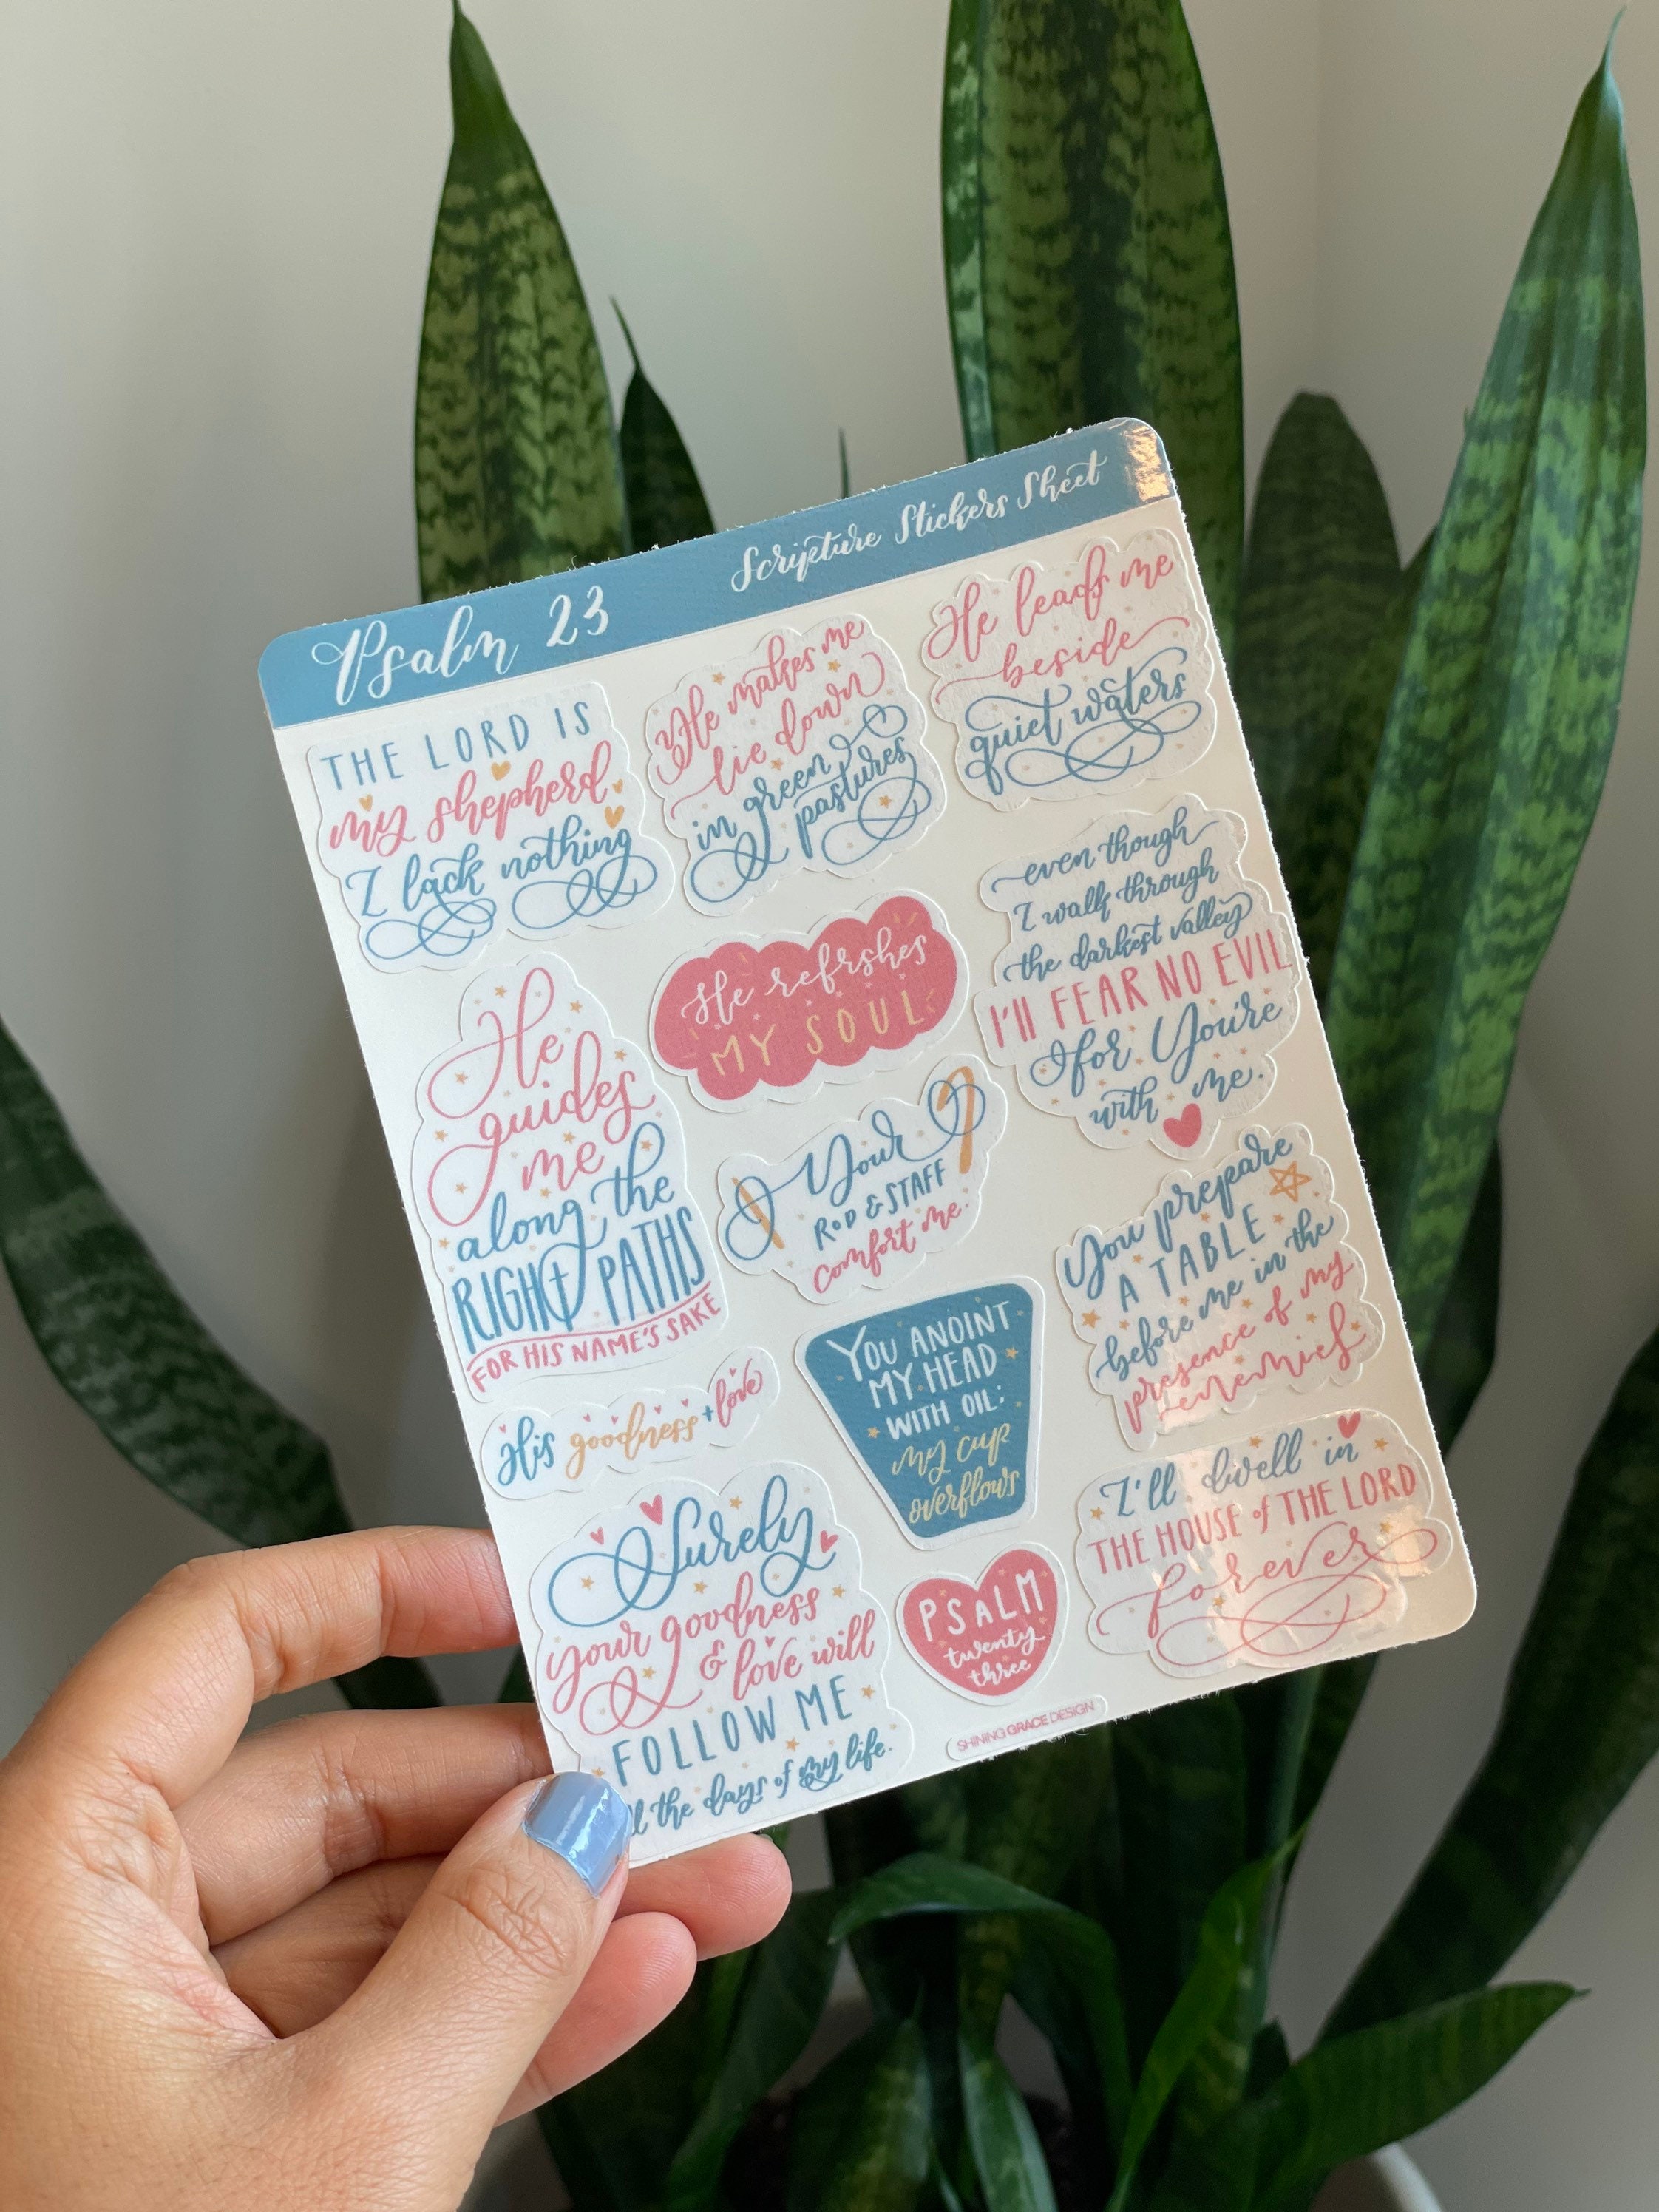 Psalm 23
Scripture Stickers Sheet
THE LORD IS
my shepherd
I lack nothing
He makes me
lie down
in green
pastures
He leads me
beside
quiet waters
He guides
me
along the
RIGHT PATHS
FOR HIS NAME'S SAKE
He refrshes
MY SOUL
even though
I walk through
the darkest valley
I'll FEAR NO EVIL
for You're
with me.
Your
ROD & STAFF
comfort me.
You prepare
A TABLE
before me in the
presence of my
enemies
His goodness + love
YOU ANOINT
MY HEAD
WITH OIL;
my cup
overflows
Surely
your goodness
& love will
FOLLOW ME
the days of my life.
PSALM
twenty
three
I'll dwell in
THE HOUSE of THE LORD
forever
SHINING GRACE DESIGN